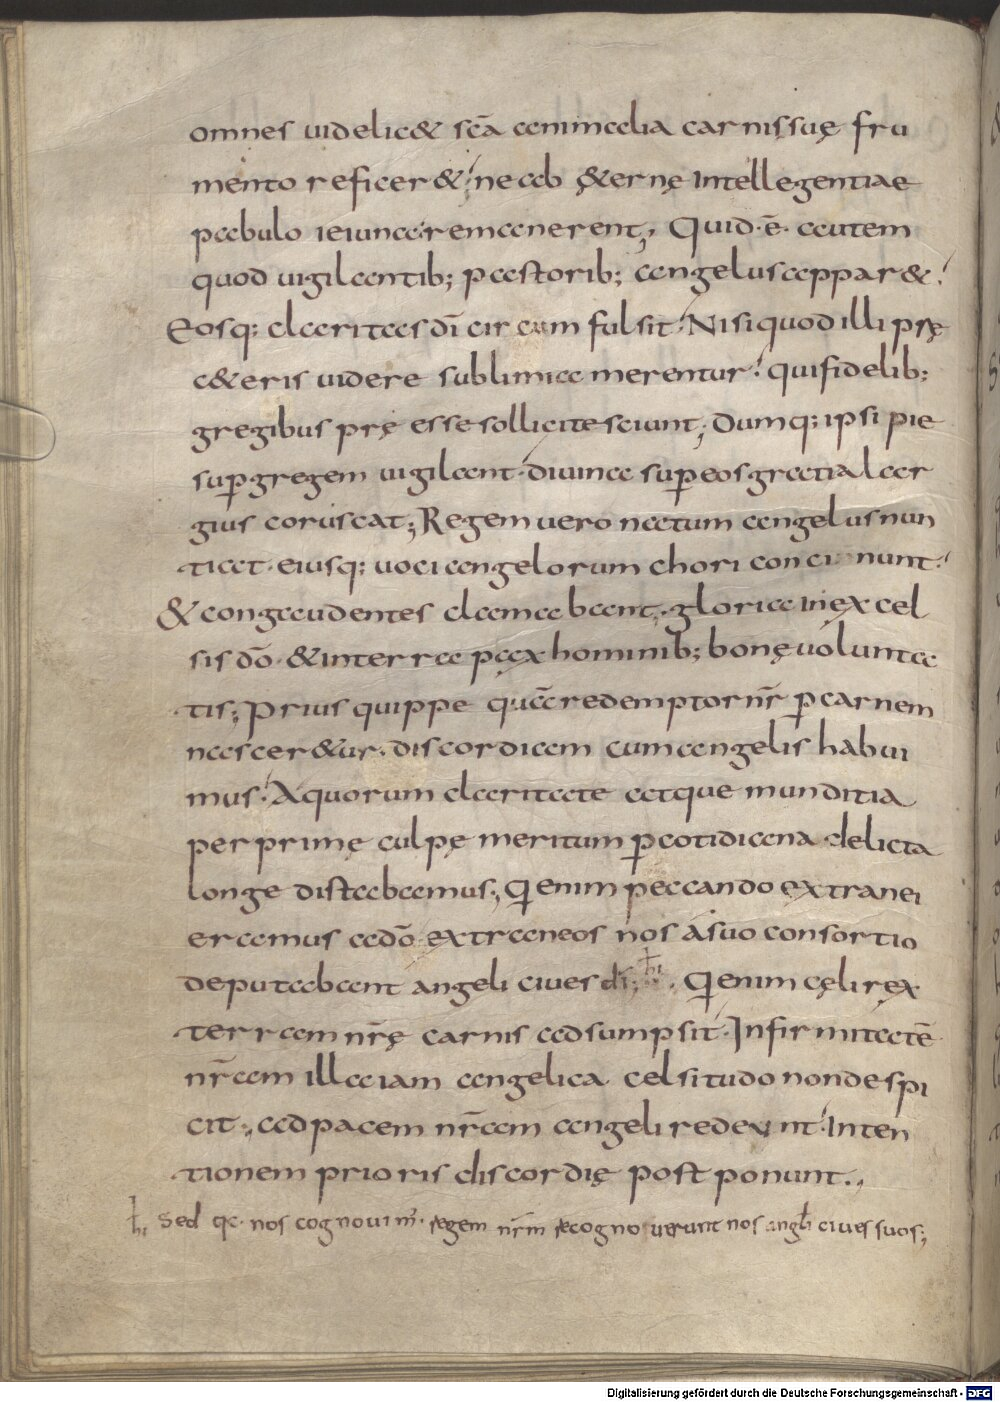 omnes uidelic& scā animalia carnis suę fru
mento reficer&; ne ab ę&ernę intellegentiae
pabulo ieiuna remanerent; Quid ·ē· autem
quod uigilantib; pastorib; angelus appar&;
Eosq; claritas dī circum fulsit. Nisi quod illi prę
c&eris uidere sublimia merentur; qui fidelib;
gregibus prę esse sollicite sciunt; Dumq; ipsi pie
sup gregem uigilant· diuina sup eos gratia lar
gius coruscat; Regem uero natum angelus nun
tiat· eiusq; uoci angelorum chori concinunt;
& congaudentes clamabant; gloria in excel
sis dō· & in terra pax hominib; bonę uolunta
tis; Prius quippe quā redemptor nr̄ p carnem
nascer&ur· discordiam cum angelis habui
mus; A quorum claritate atque munditia
per primę culpę meritum p cotidiana delicta
longe distabamus; Q enim peccando extranei
eramus a dō extraneos nos a suo consortio
deputabant angeli ciues dī; hi. Q enim cęli rex
terram nrę carnis adsumpsit· Infirmitatē
nr̄am illa iam angelica celsitudo non despi
cit; ad pacem nr̄am angeli redeunt· Inten
tionem prioris discordię post ponunt.,
hi Sed qa nos cognouim; regem nr̄m recognouerunt nos angli ciues suos;
Digitalisierung gefördert durch die Deutsche Forschungsgemeinschaft - DFG